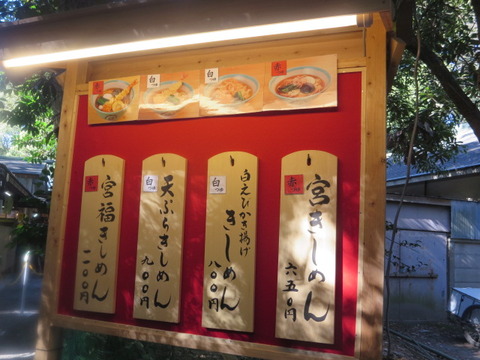 赤
宮きしめん
六五〇円
白
つゆ
白えびかき揚げ
きしめん
八〇〇円
白
つゆ
天ぷらきしめん
九〇〇円
赤
宮福きしめん
一一〇〇円
白
白
赤